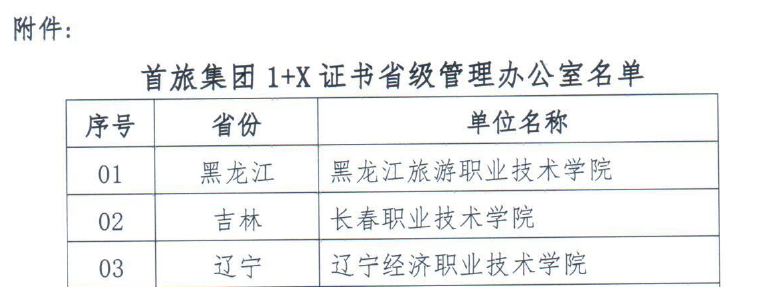 附件:
首旅集团 1+X 证书省级管理办公室名单
序号 省份 单位名称
01 黑龙江 黑龙江旅游职业技术学院
02 吉林 长春职业技术学院
03 辽宁 辽宁经济职业技术学院